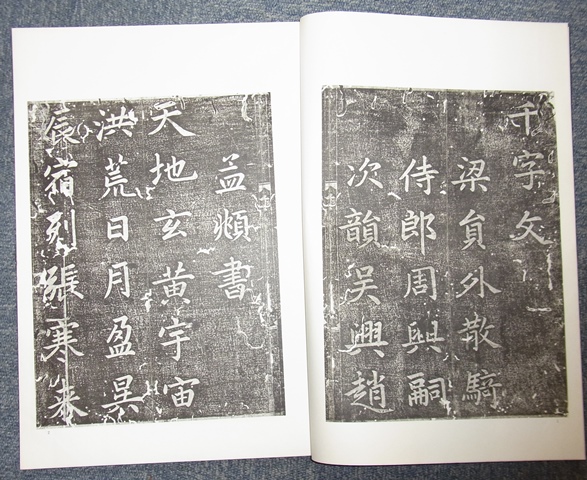 千字文
梁貟外散騎
侍郎周興嗣
次韻吳興趙
孟頫書
天地玄黄宇宙
洪荒日月盈昃
辰宿列張寒来